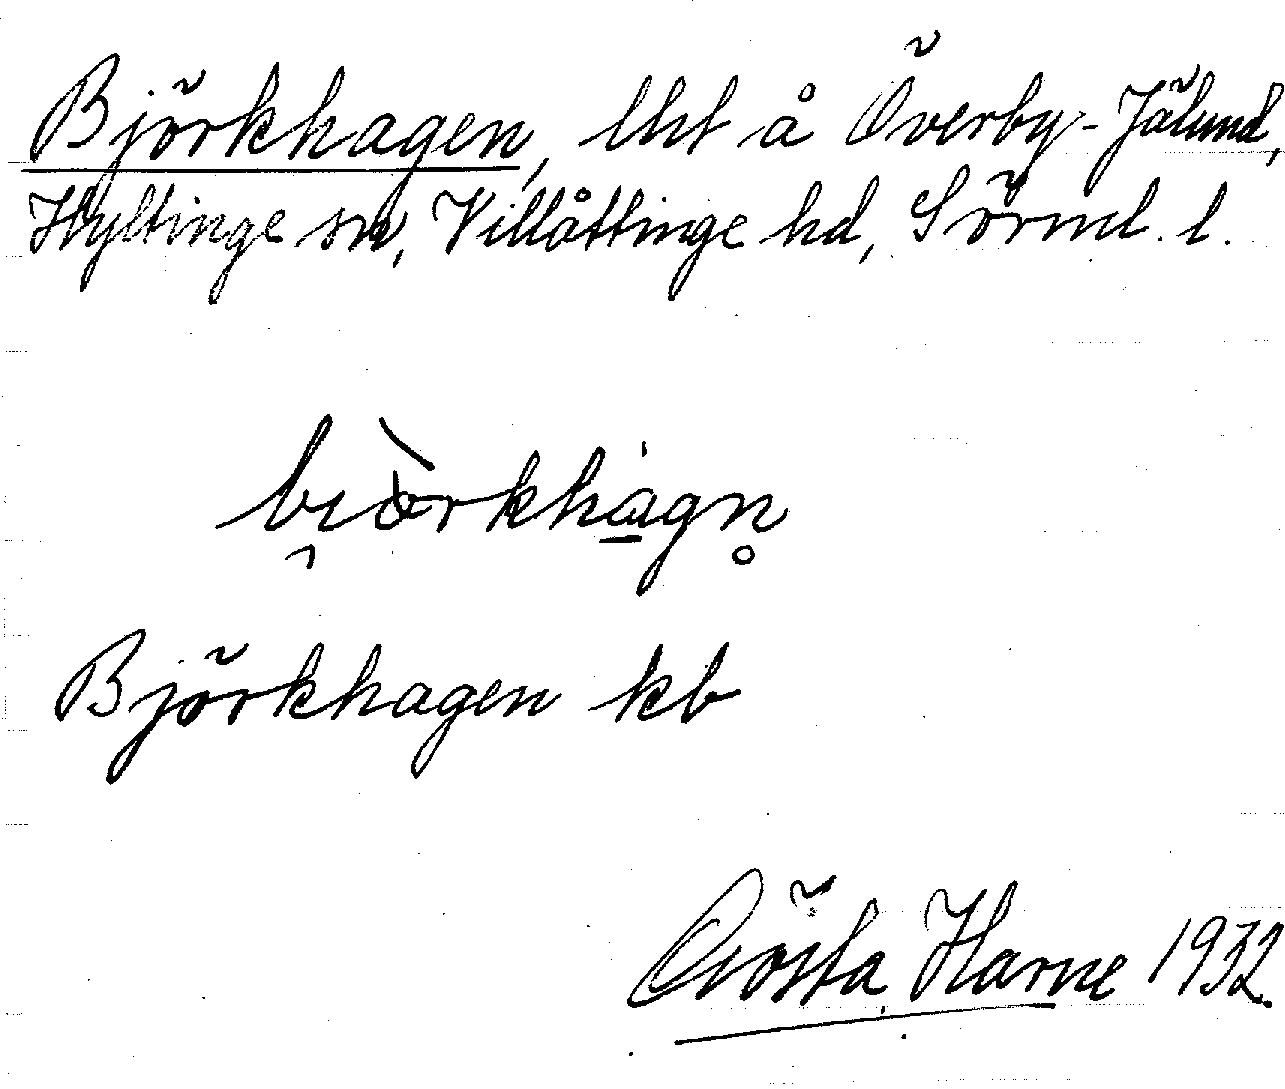 Björkhagen, lht å Överby-Jälund,
Hyltinge sn, Villåttinge hd, Sörml. l.
bi̯ò̀rkhàgn̥
Björkhagen kb
Gösta Harne 1932.